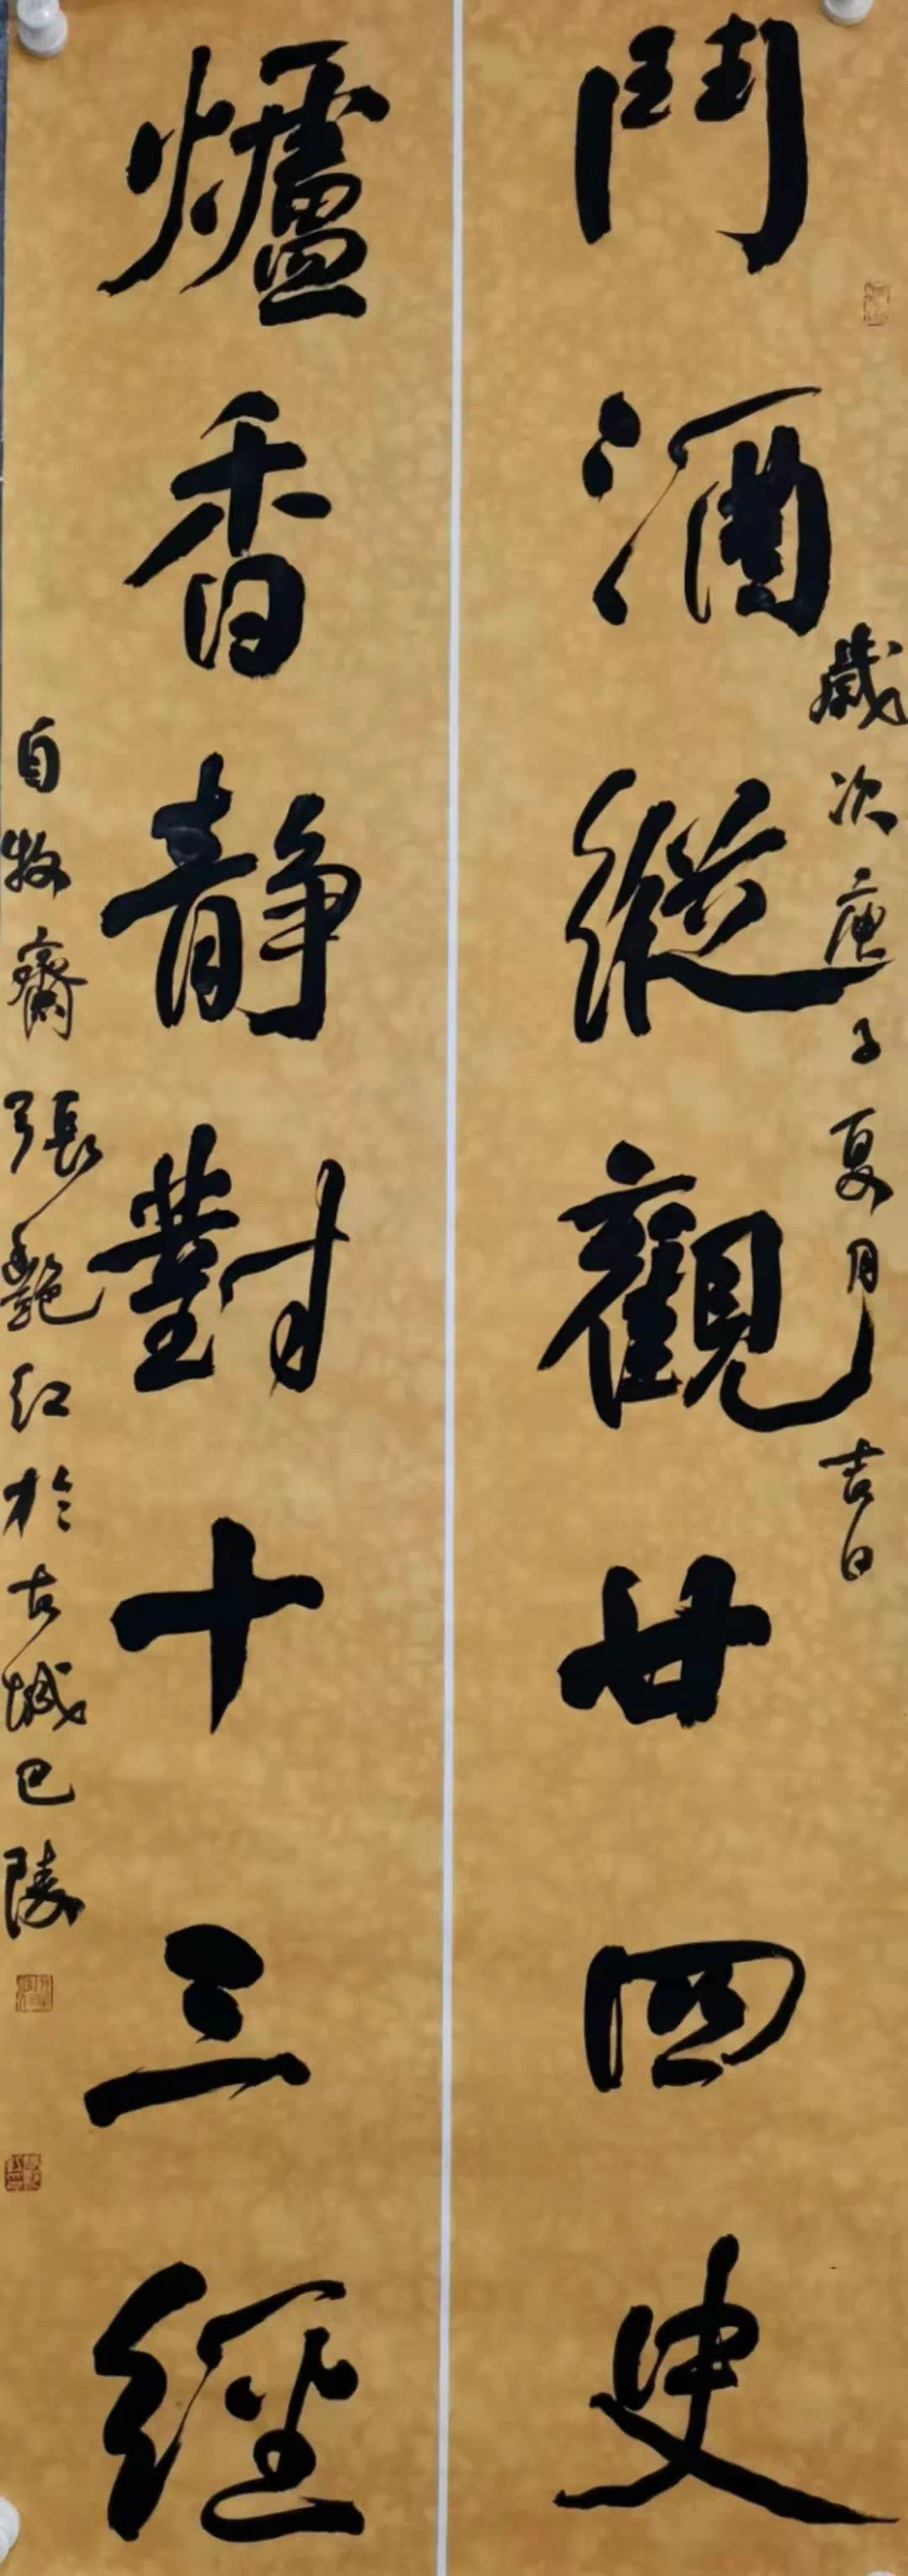 鬥酒縱觀廿四史
歲次庚子夏月吉日
爐香靜對十三經
自牧齋張艷紅於古城巴陵